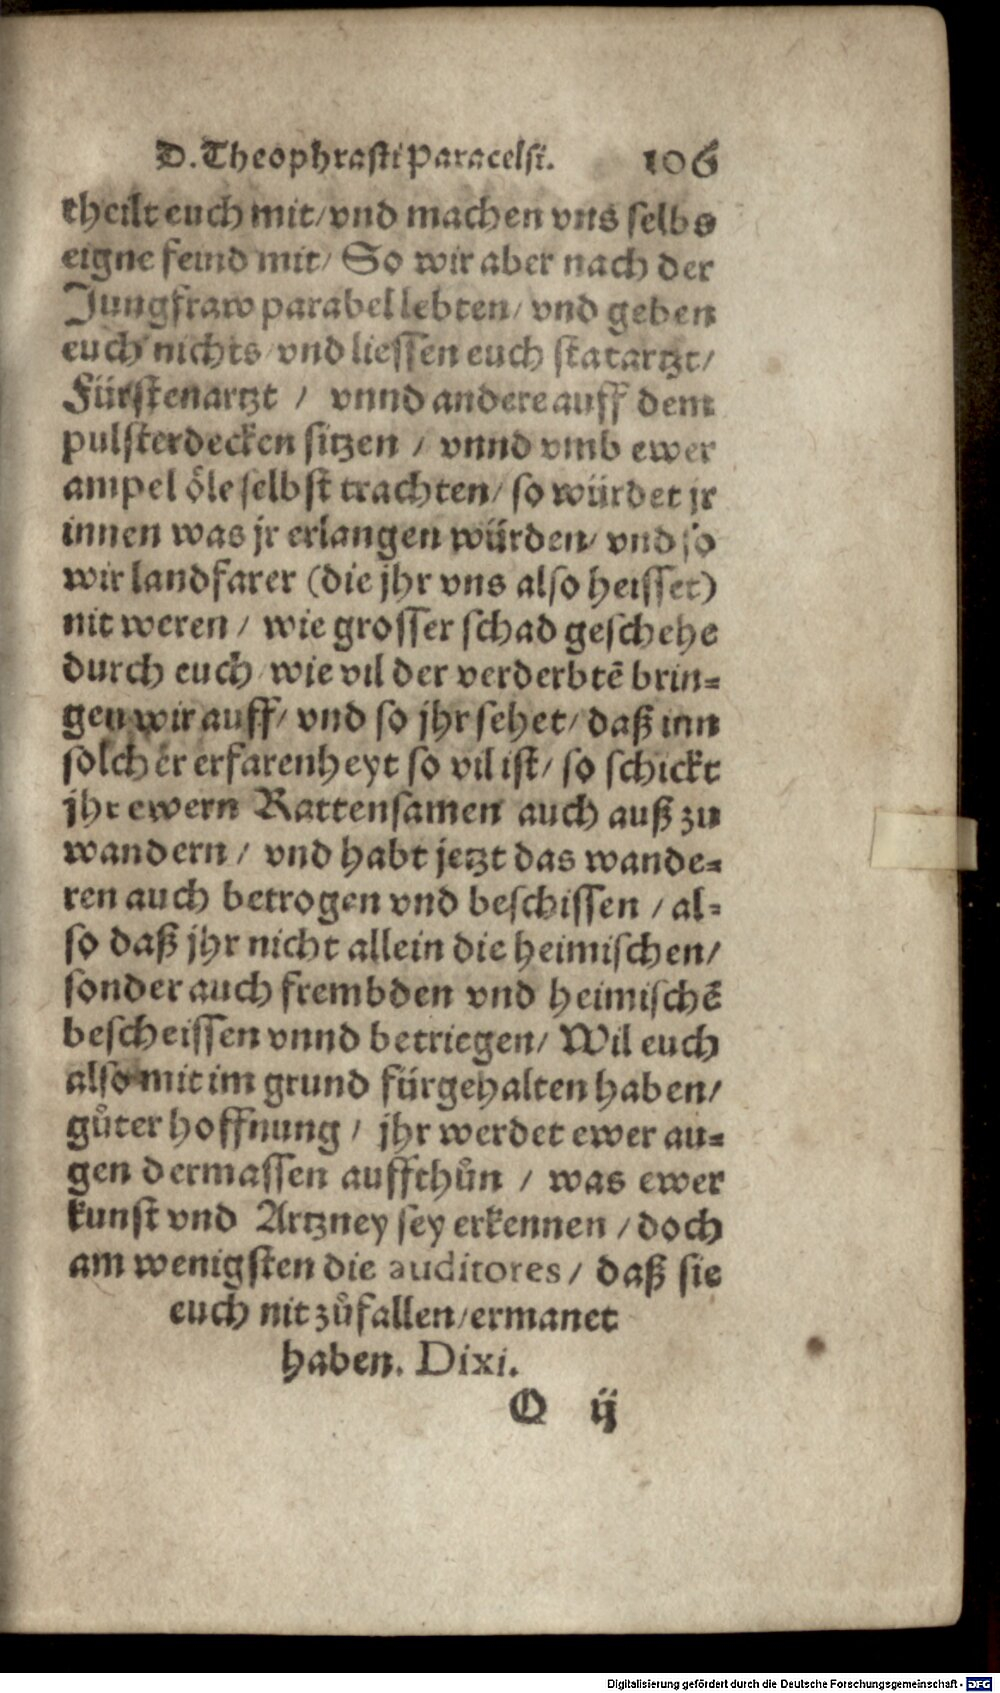 D. Theophrasti Paracelsi. 106
theilt euch mit/ vnd machen vns selbs
eigne feind mit/ So wir aber nach der
Jungfraw parabel lebten/ vnd geben
euch nichts/ vnd liessen euch statartzt/
Fürstenartzt / vnnd andere auff dem
pulsterdecken sitzen / vnnd vmb ewer
ampel öle selbst trachten/ so würdet jr
innen was jr erlangen würden/ vnd so
wir landfarer (die jhr vns also heisset)
nit weren / wie grosser schad geschehe
durch euch/ wie vil der verderbtē brin-
gen wir auff/ vnd so jhr sehet/ daß inn
solcher erfarenheyt so vil ist/ so schickt
jhr ewern Rattensamen auch auß zu
wandern / vnd habt jetzt das wande-
ren auch betrogen vnd beschissen / al-
so daß jhr nicht allein die heimischen/
sonder auch frembden vnd heimischē
bescheissen vnnd betriegen/ Wil euch
also mit im grund fürgehalten haben/
gůter hoffnung / jhr werdet ewer au-
gen dermassen auffthůn / was ewer
kunst vnd Artzney sey erkennen / doch
am wenigsten die auditores / daß sie
euch nit zůfallen/ ermanet
haben. Dixi.
Q ij
Digitalisierung gefördert durch die Deutsche Forschungsgemeinschaft - DFG